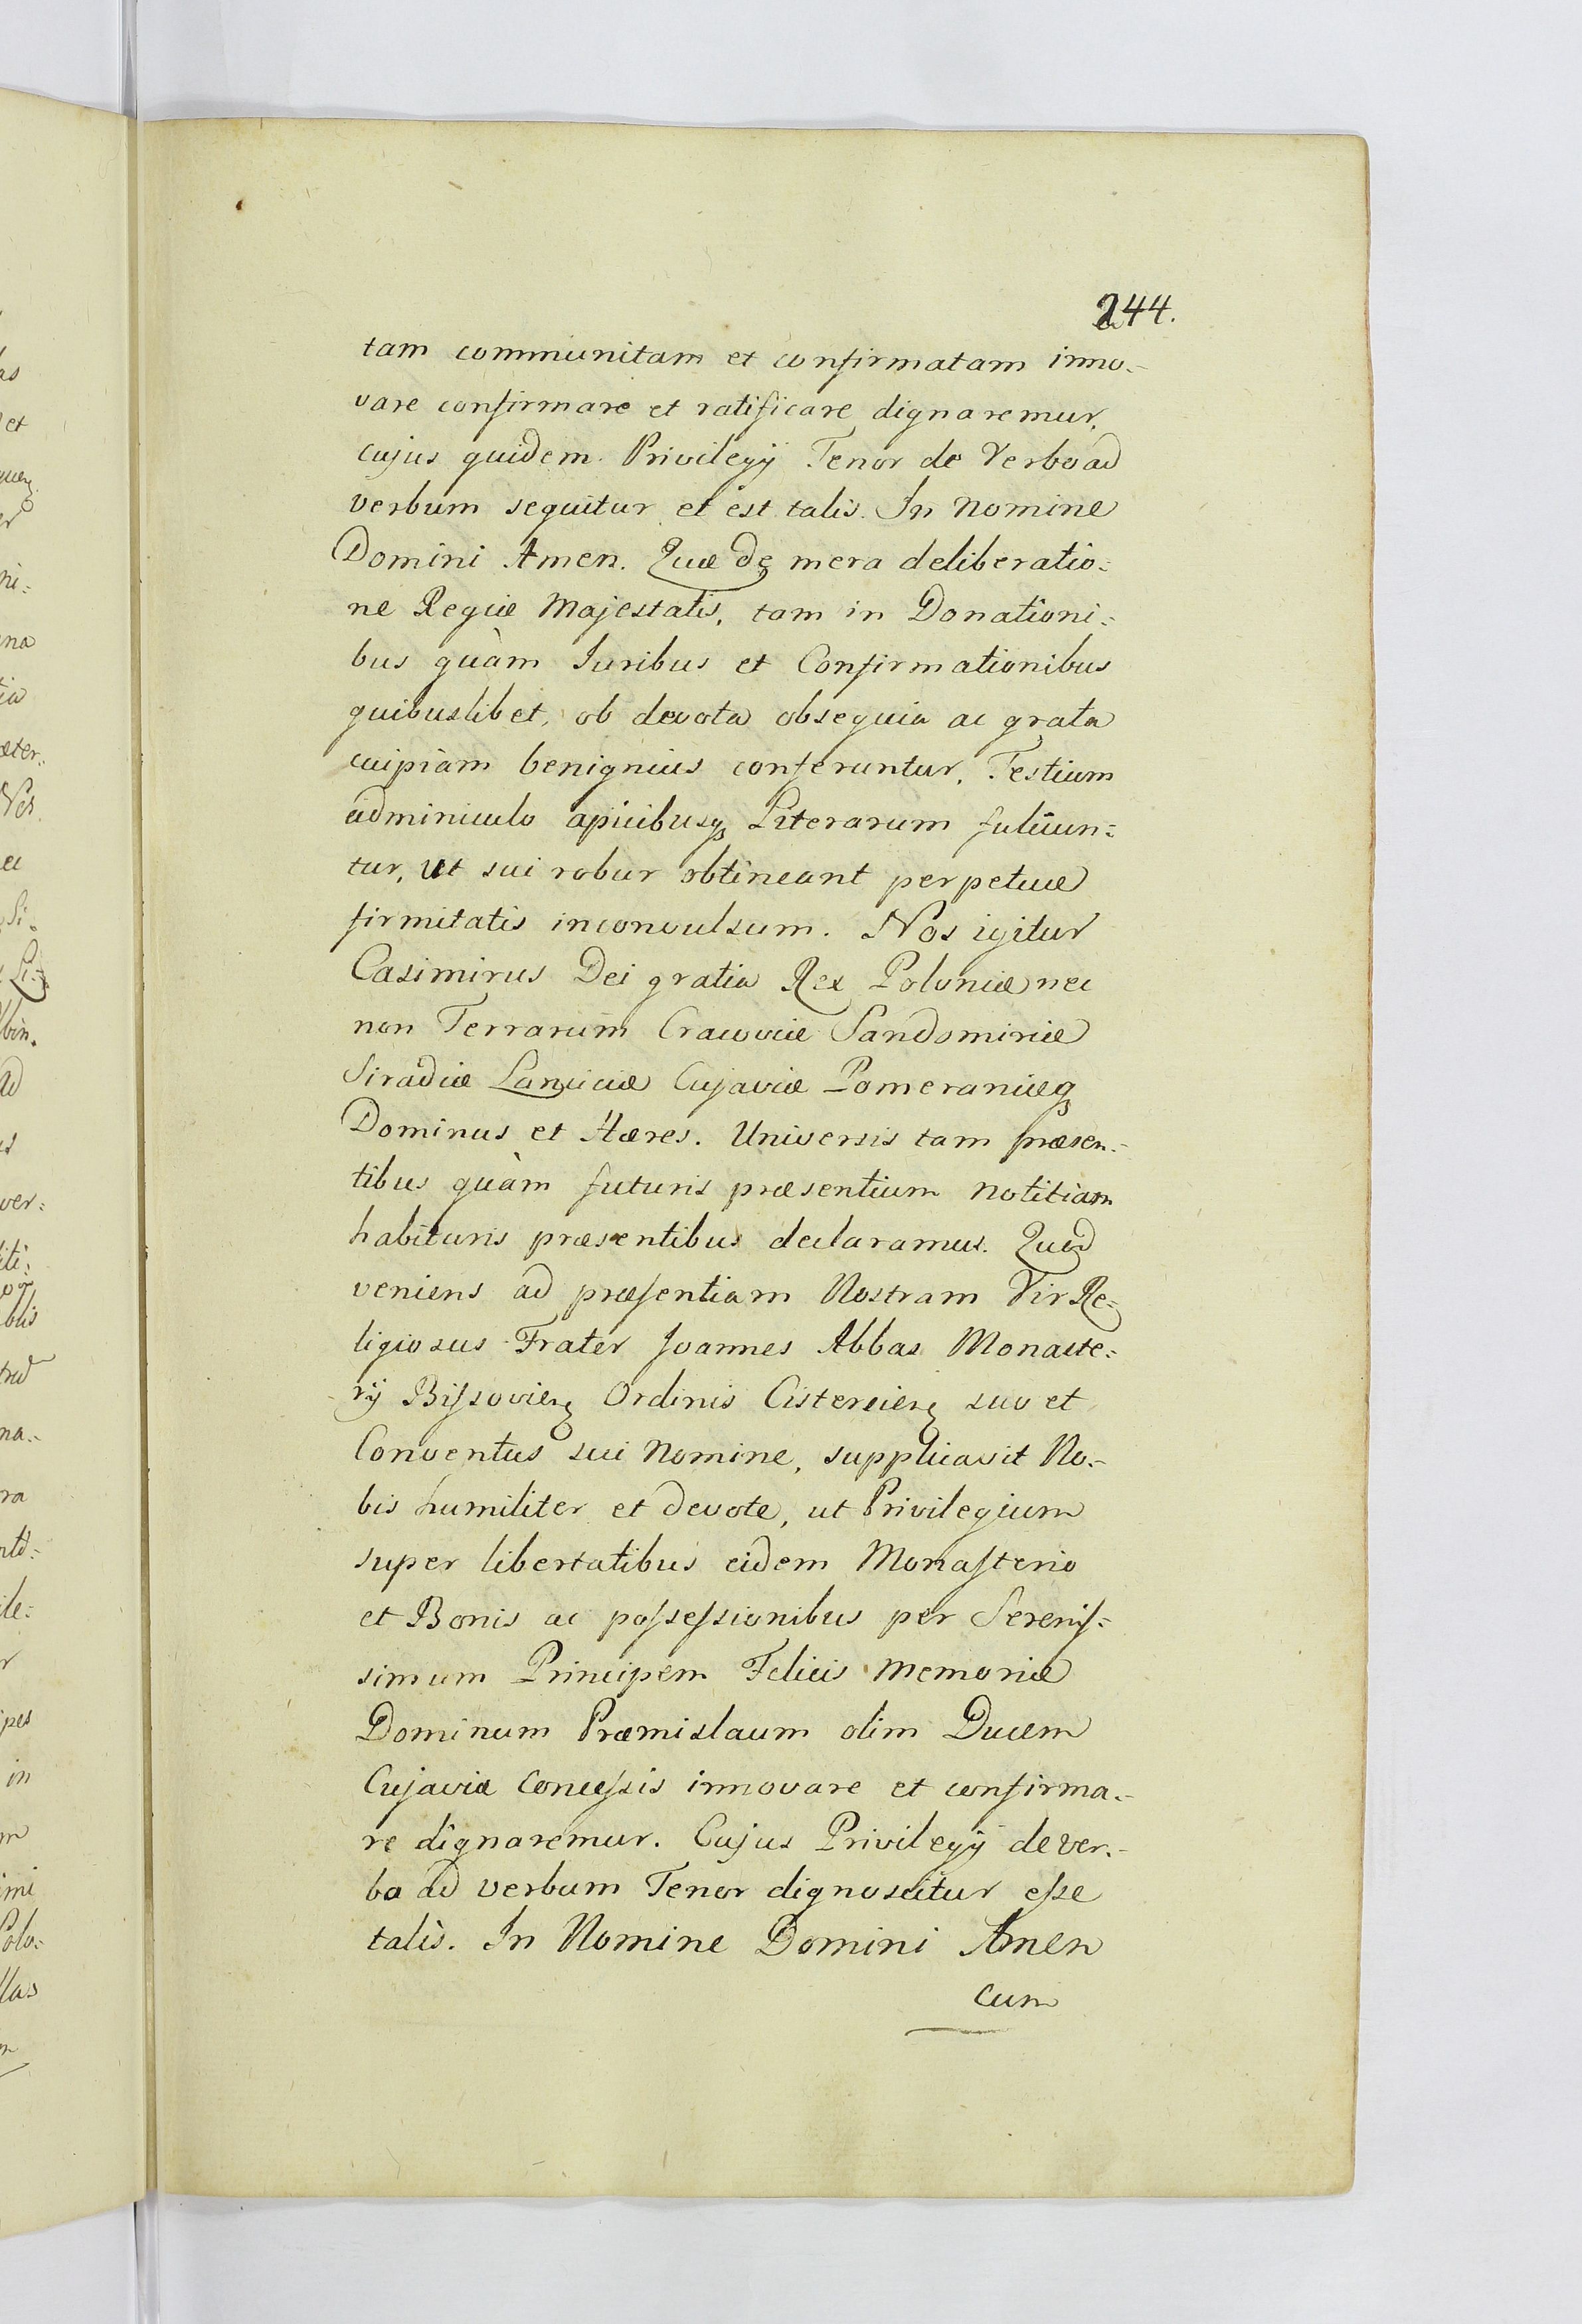 244.
tam communitam et confirmatam inno=
vare confirmare et ratificare dignaremur,
cujus quidem Privilegij Tenor de Verbo ad
verbum sequitur et est talis. In nomine
Domini Amen. Quæ de mera deliberatio=
ne Regiæ Majestatis, tam in Donationi=
bus quàm Juribus et Confirmationibus
quibuslibet, ob devota obsequia ac grata
cuipiàm benignius conferuntur, Testium
adminiculo apicibusq Literarum fulciun=
tur, ut sui robur obtineant perpetuæ
firmitatis inconvulsum. Nos igitur
Casimirus Dei gratia Rex Poloniæ nec
non Terrarum Cracoviæ Sandomiriæ
Siradiæ Lanciciæ Cujaviæ Pomeraniæq
Dominus et Hæres. Universis tam præsen=
tibus quàm futuris præsentium notitiam
habituris præsentibus declaramus. Quod
veniens ad præsentiam Nostram Vir Re=
ligiosus Frater Joannes Abbas Monaste=
rij Bissovien Ordinis Cistercien suo et
Conventus sui Nomine, supplicavit No=
bis humiliter et devote, ut Privilegium
super libertatibus eidem Monasterio
et Bonis ac possessionibus per Serenis=
simum Principem Felicis memoriæ
Dominum Præmislaum olim Ducem
Cujaviæ Concessis innovare et confirma=
re dignaremur. Cujus Privilegij de ver=
bo ad verbum Tenor dignoscitur esse
talis. In Nomine Domini Amen
Cum